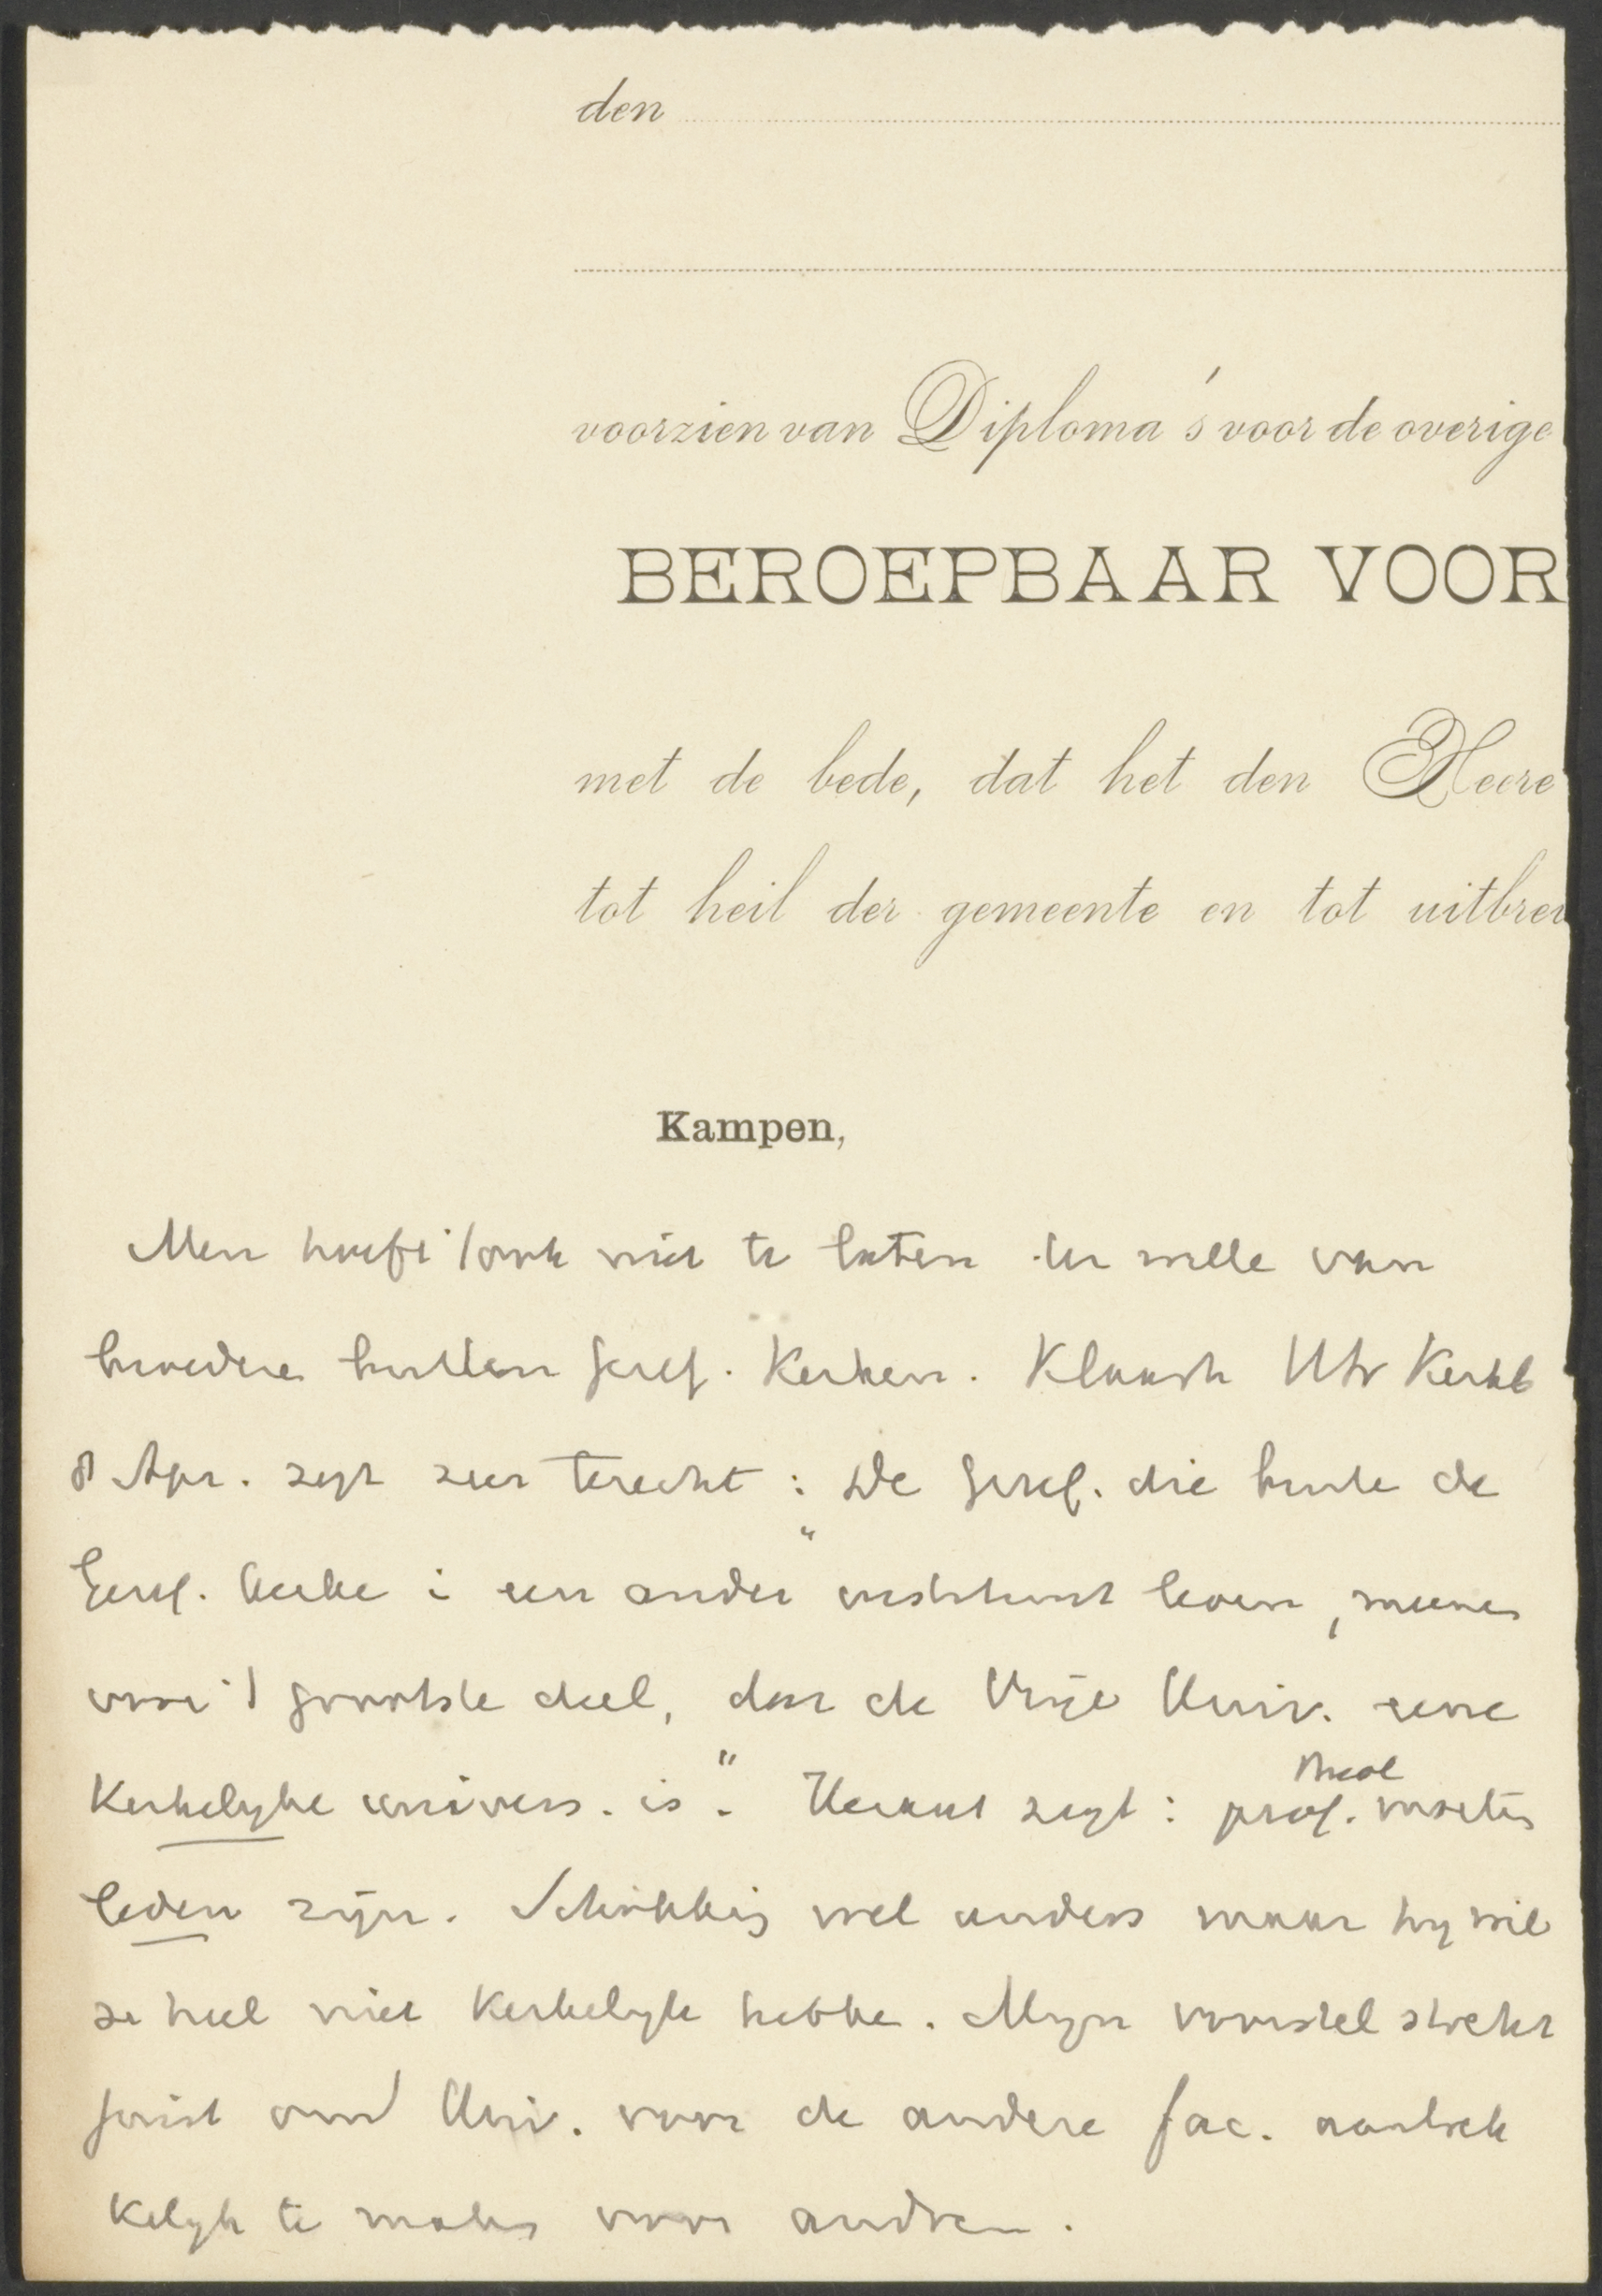 den
voorzien van Diploma's voor de overige
BEROEPBAAR VOOR
met de bede, dat het den Heere
tot heil der gemeente en tot uitbrei
Kampen,
Men hoeft ook niet te laten ter wille van
broedere buiten Geref. Kerken. Klaarh Utr Kerkb
8 Apr. zegt zeer terecht: "De Geref. die buite de
Geref. kerke i een ander instituut leven, meenen
voor 't grootste deel, dat de Vrije Univ. eene
Kerkelyke univers. is". Heraut zegt: theol prof. moeten
leden zijn. Schokking wel anders maar hy wil
ze heel niet Kerkelyk hebbe. Mijn voorstel strekt
juist om d Univ. voor de andere fac. aantrek
kelyk te maken voor andren.